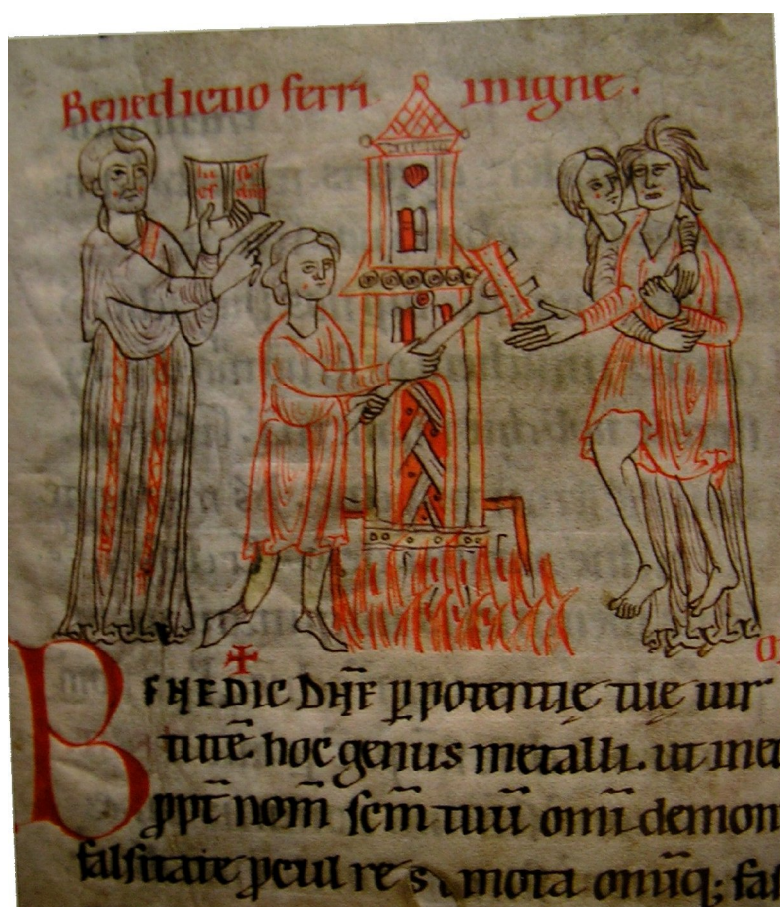 Benedictio ferri in igne.
BENEDIC DN̄E p̄ potentię tue uir
tutē hoc genus metalli. ut in
p̄pt̄ nom̄ sc̄m tuū om̄i demon
falsitate p̄cul re mota om̄iq;